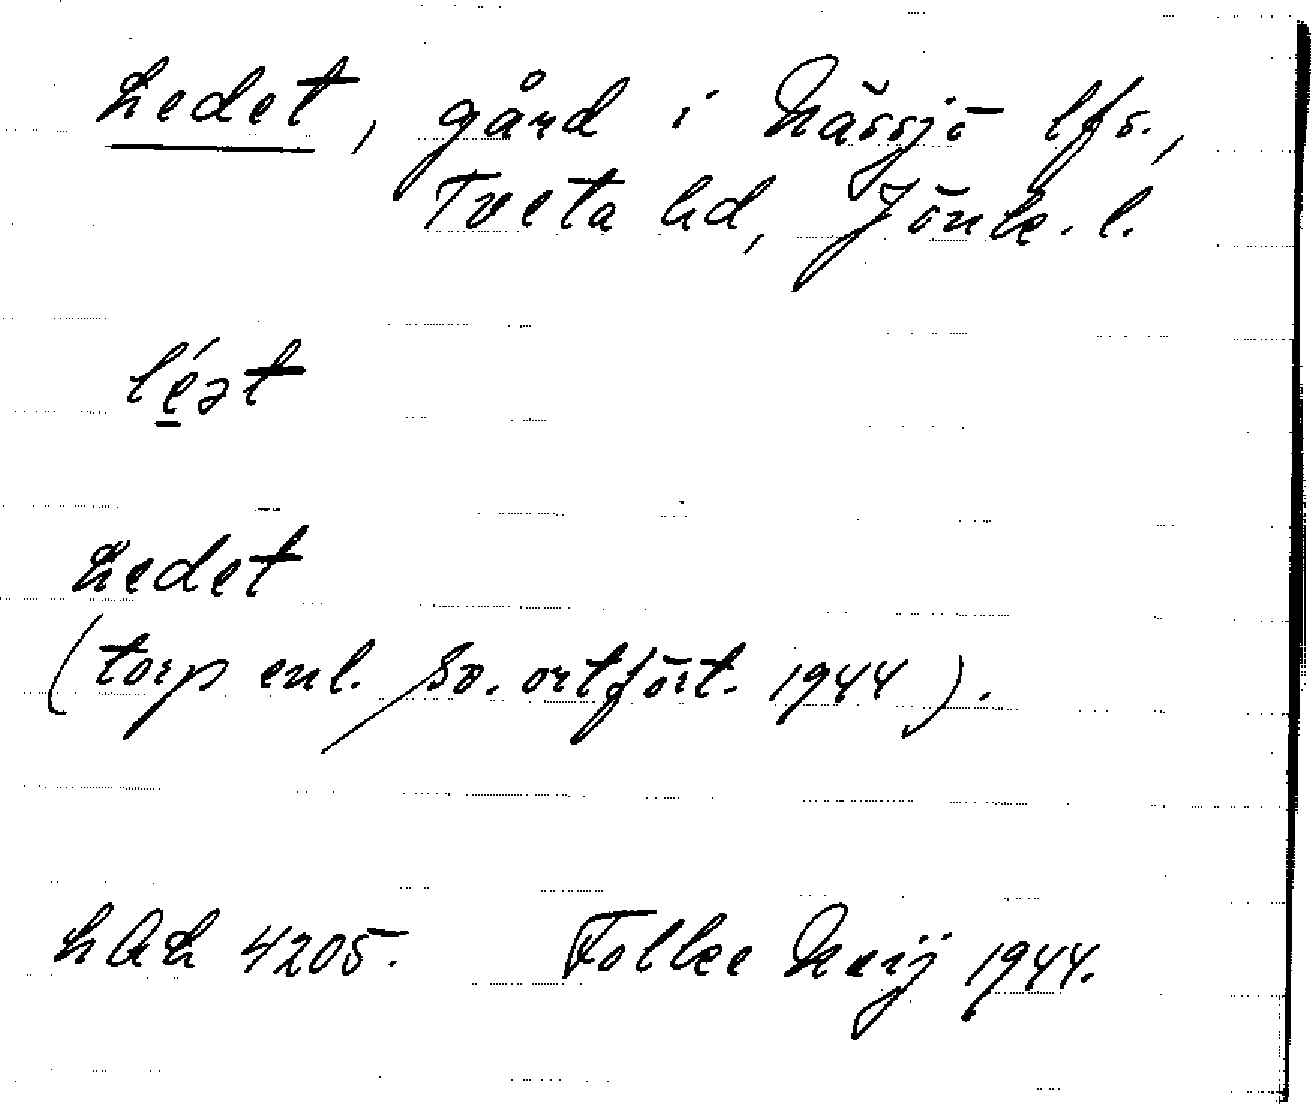 Ledet, gård i Nässjö lfs.,
Tveta hd, Jönk. l.
lé̱ət
Ledet
(torp enl. Sv. ortfört. 1944).
4205. Folke Neij 1944.